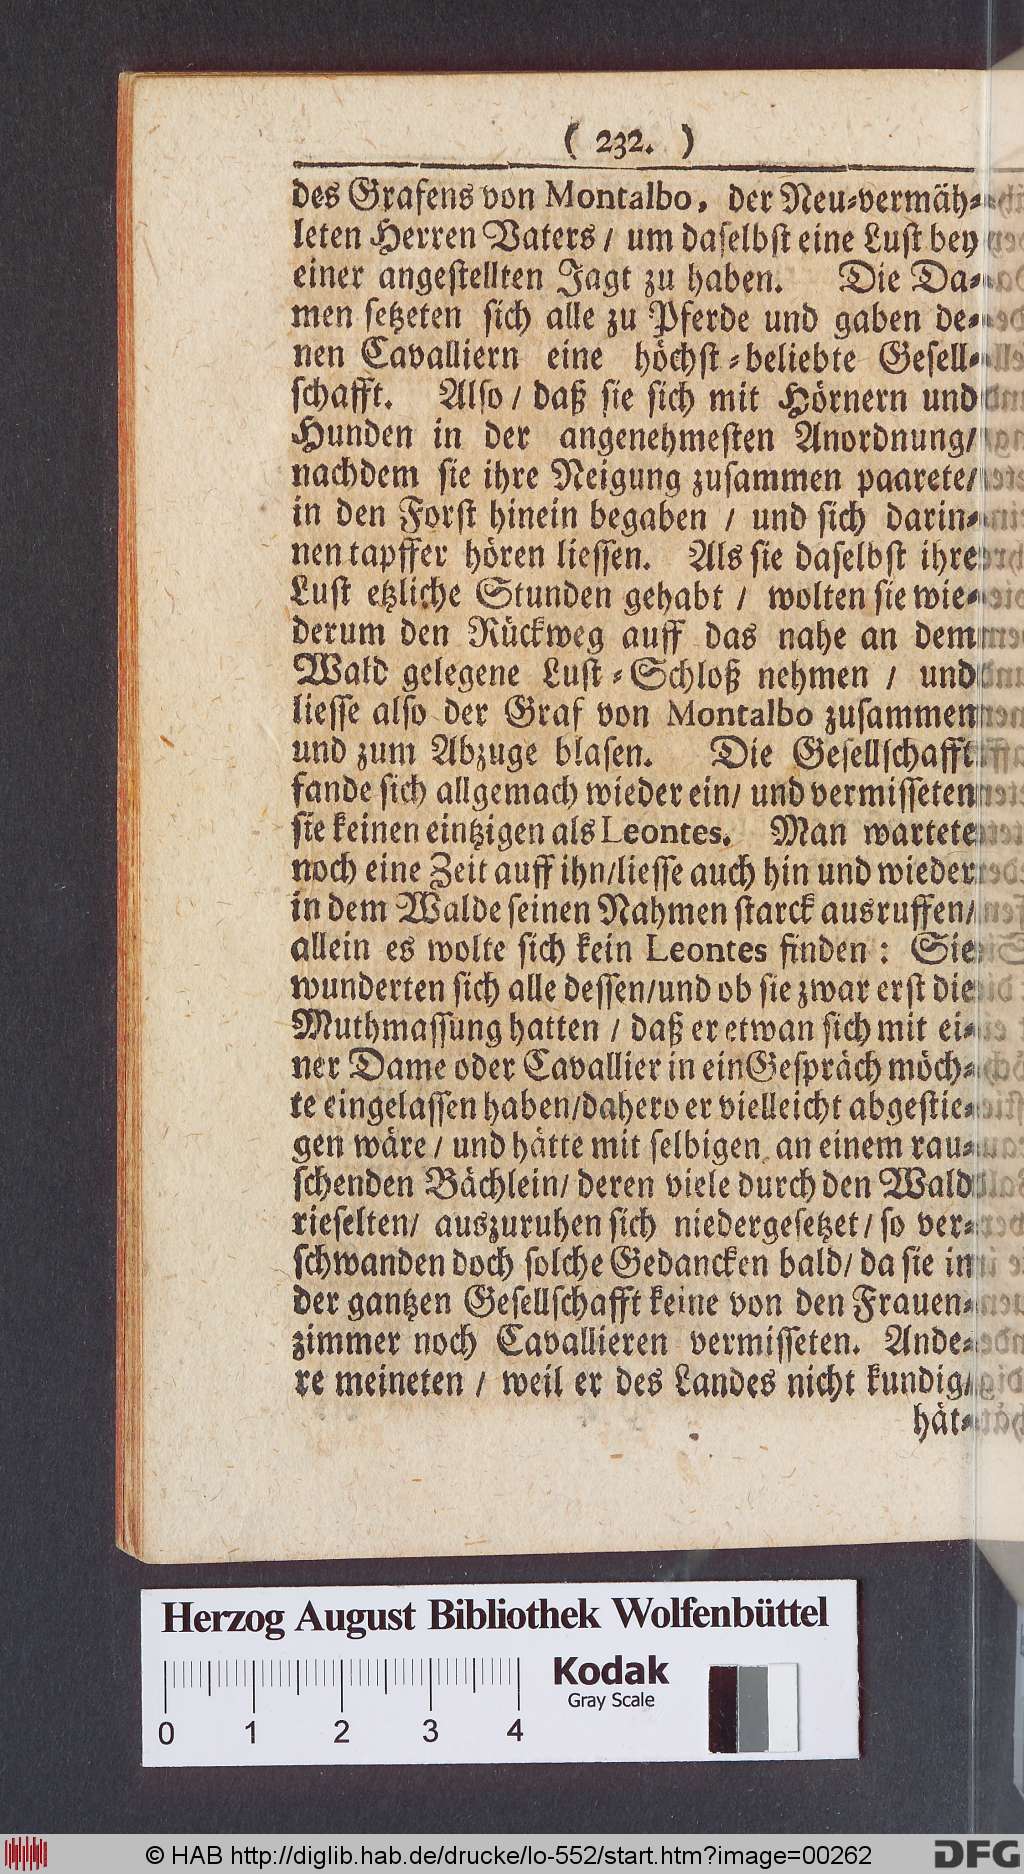 ( 232. )
des Grafens von Montalbo, der Neu-vermäh-
leten Herren Vaters / um daselbst eine Lust bey
einer angestellten Jagt zu haben. Die Da-
men setzeten sich alle zu Pferde und gaben de-
nen Cavalliern eine höchst-beliebte Gesell-
schafft. Also / daß sie sich mit Hörnern und
Hunden in der angenehmesten Anordnung/
nachdem sie ihre Neigung zusammen paarete/
in den Forst hinein begaben / und sich darin-
nen tapffer hören liessen. Als sie daselbst ihre
Lust etzliche Stunden gehabt / wolten sie wie-
derum den Rückweg auff das nahe an dem
Wald gelegene Lust-Schloß nehmen / und
liesse also der Graf von Montalbo zusammen
und zum Abzuge blasen. Die Gesellschafft
fande sich allgemach wieder ein/ und vermisseten
sie keinen eintzigen als Leontes. Man wartete
noch eine Zeit auff ihn/liesse auch hin und wieder
in dem Walde seinen Nahmen starck ausruffen/
allein es wolte sich kein Leontes finden : Sie
wunderten sich alle dessen/und ob sie zwar erst die
Muthmassung hatten / daß er etwan sich mit ei-
ner Dame oder Cavallier in ein Gespräch möch-
te eingelassen haben/dahero er vielleicht abgestie-
gen wäre / und hätte mit selbigen an einem rau-
schenden Bächlein/ deren viele durch den Wald
rieselten/ auszuruhen sich niedergesetzet / so ver-
schwanden doch solche Gedancken bald/ da sie in
der gantzen Gesellschafft keine von den Frauen-
zimmer noch Cavallieren vermisseten. Ande-
re meineten / weil er des Landes nicht kundig/
hät-
Herzog August Bibliothek Wolfenbüttel
Kodak
Gray Scale
0 1 2 3 4
© HAB http://diglib.hab.de/drucke/lo-552/start.htm?image=00262
DFG